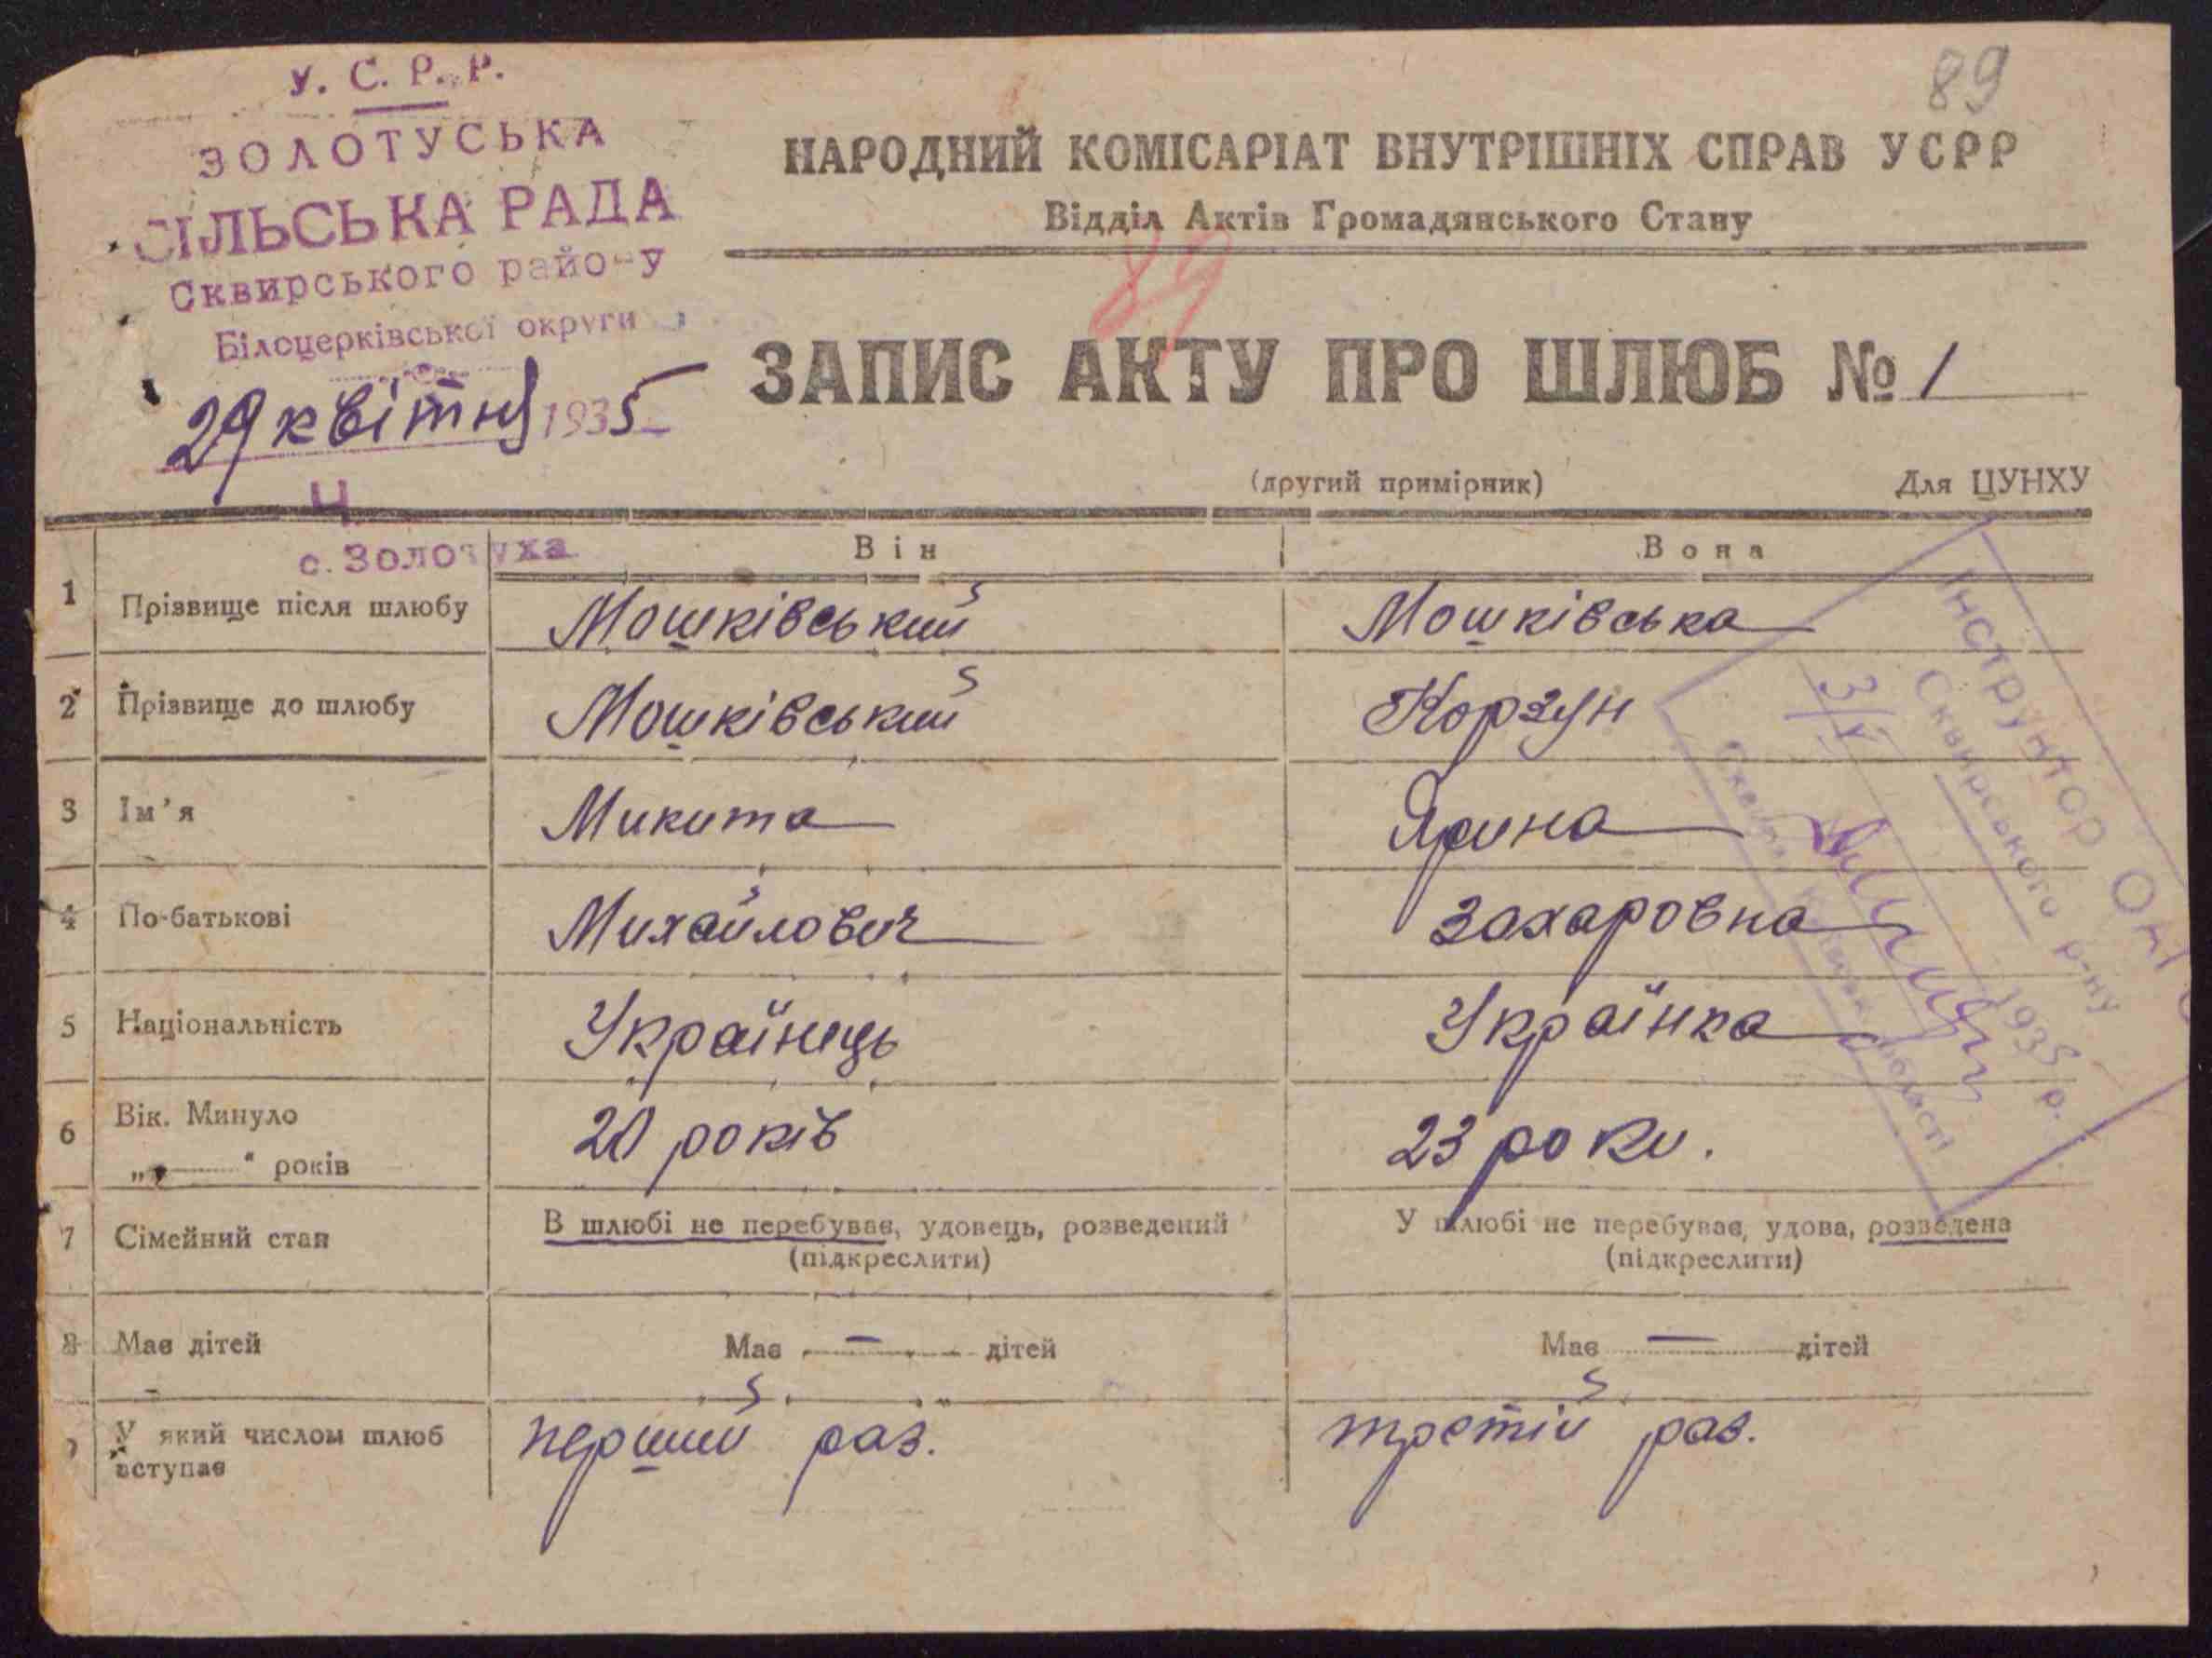 У. С. Р. Р.
ЗОЛОТУСЬКА
СІЛЬСЬКА РАДА
Сквирського району
Білоцерківської округи
29 квітня 1935
Ч
с. Золотуха
89
НАРОДНИЙ КОМІСАРІАТ ВНУТРІШНІХ СПРАВ УСРР
Відділ Актів Громадянського Стану
89
ЗАПИС АКТУ ПРО ШЛЮБ № 1
(другий примірник) Для ЦУНХУ
Він Вона
1 Прізвище після шлюбу Мошківський Мошківська
2 Прізвище до шлюбу Мошківський Корзун
3 Ім'я Микита Ярина
4 По-батькові Михайлович Захаровна
5 Національність Українець Українка
6 Вік. Минуло 20 років 23 роки.
„ “ років
7 Сімейний стан В шлюбі не перебував, удовець, розведений У шлюбі не перебував, удова, розведена
(підкреслити) (підкреслити)
8 Має дітей Має — дітей Має — дітей
9 У який числом шлюб перший раз. третій раз.
вступає
Інструктор
Сквирського р-ну
3/V 1935 р.
області